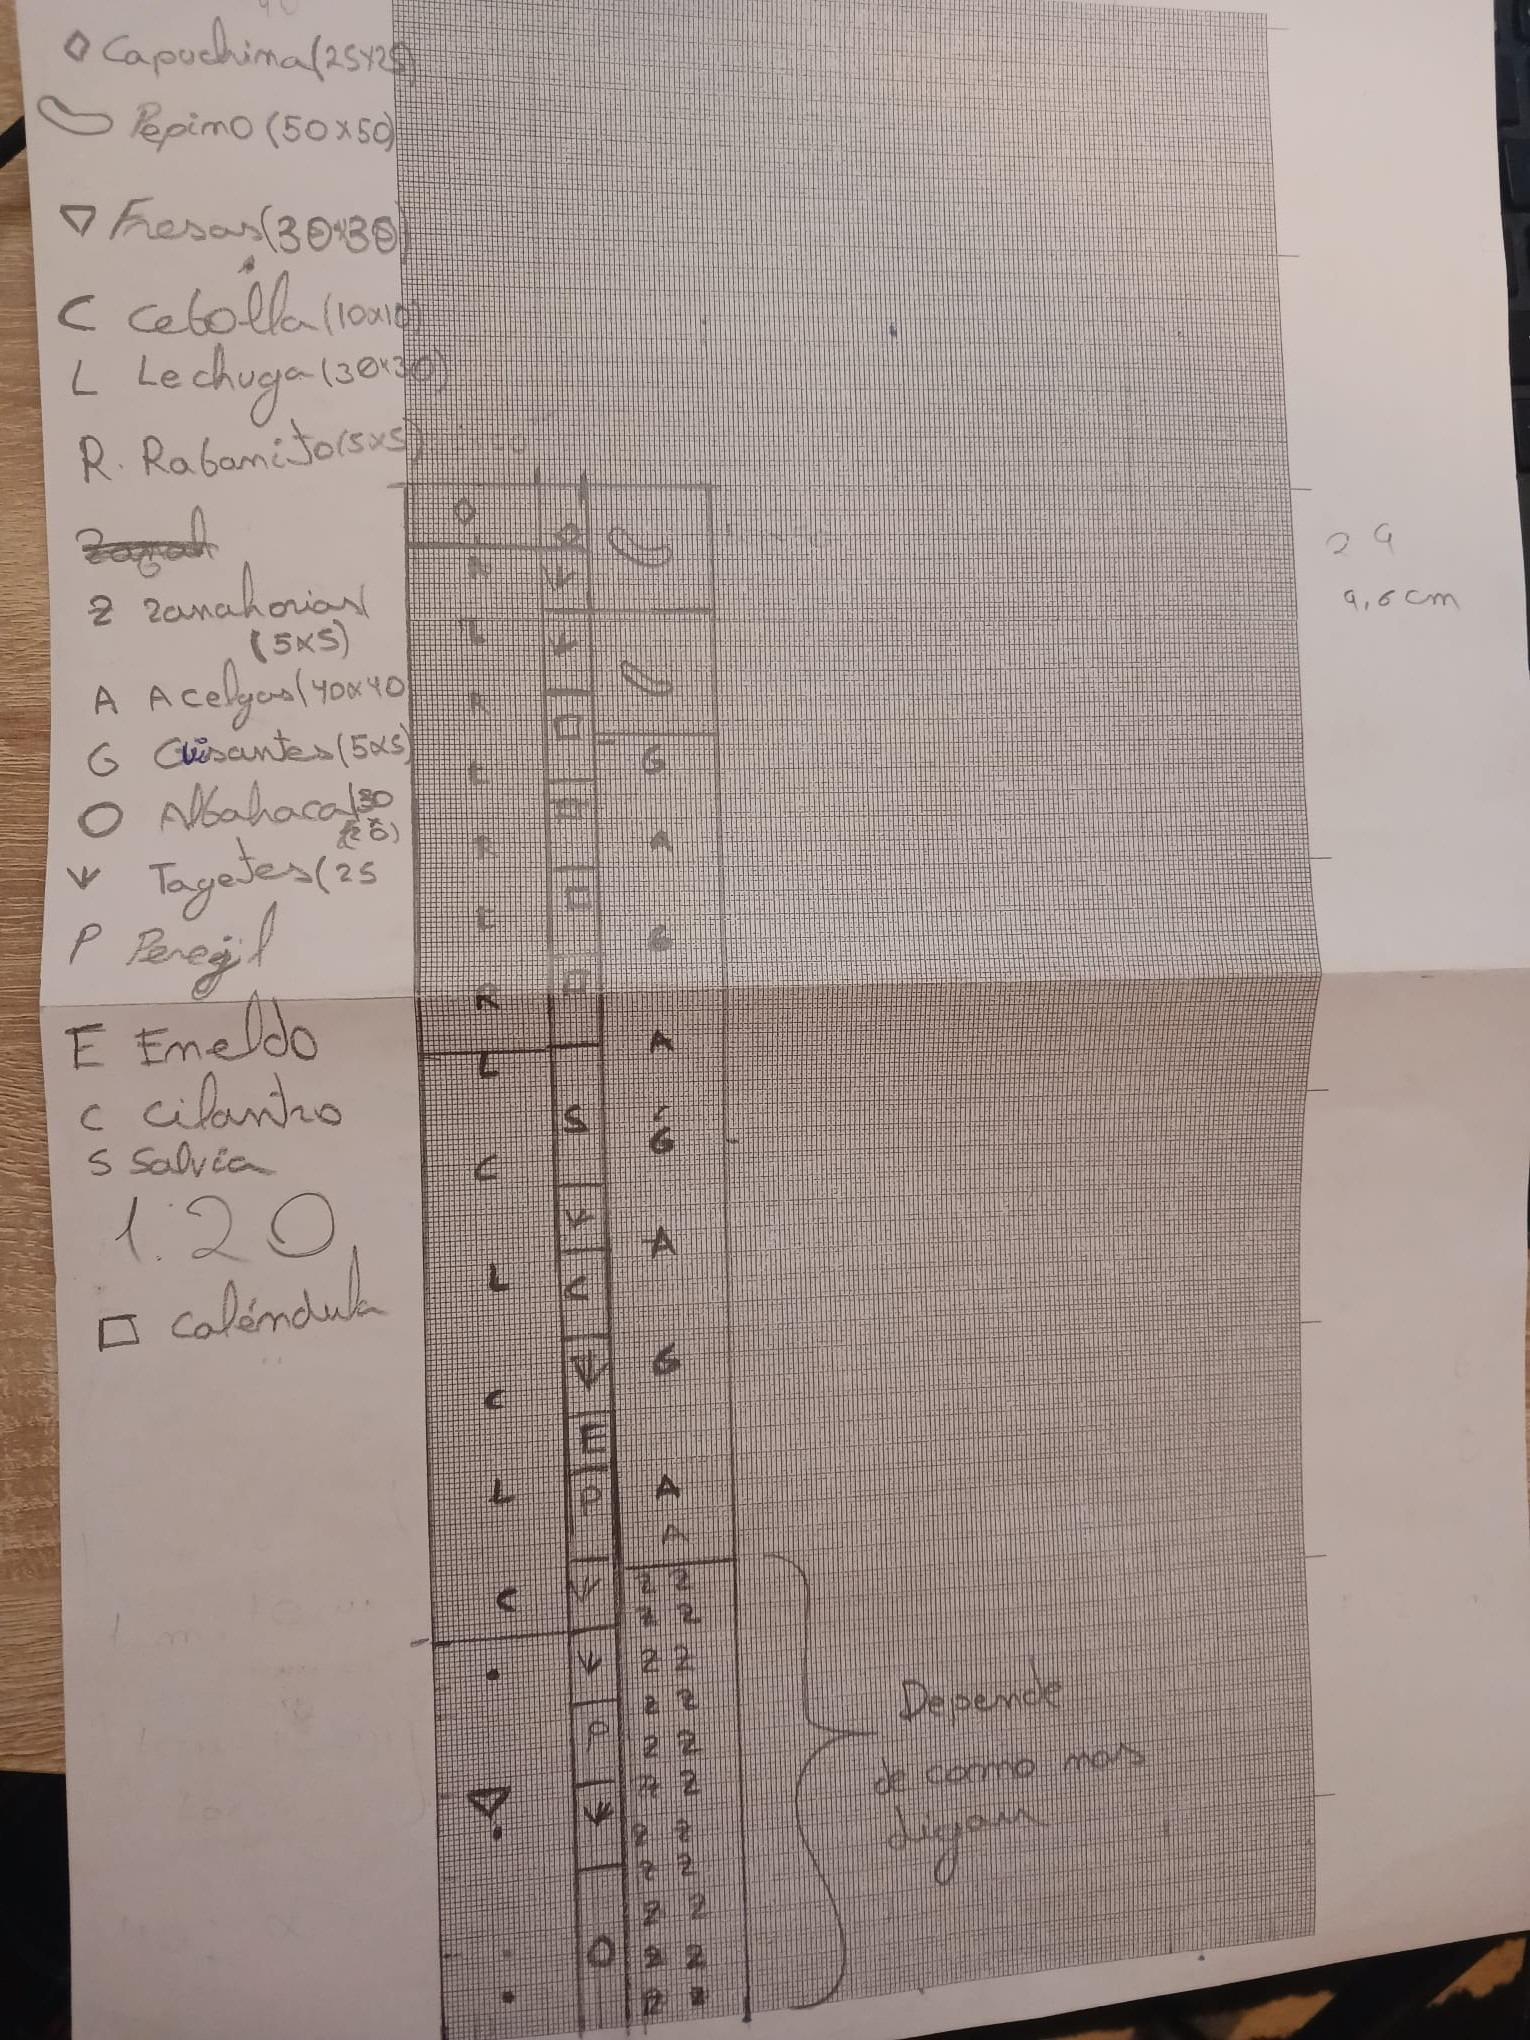 Capuchina (25x25)
Pepino (50x50)
Fresas (30x30)
C Cebolla (10x10)
L Lechuga (30x30)
R. Rabanito (5x5)
Z Zanahorias
(5x5)
A Acelgas (40x40
G Guisantes (5x5)
Albahaca (30
Tagetes (25
P Peregil
E Eneldo
C Cilantro
S Salvia
1:20
Caléndula
29
9,6 cm
R
L
R
L
R
L
R
L
C
L
C
L
C
S
C
E
P
P
O
G
A
G
A
G
A
G
A
A
Z Z
Z Z
Z Z
Z Z
Z Z
Z Z
Z Z
Z Z
Z Z
Z Z
Z Z
Depende
de como nos
digan